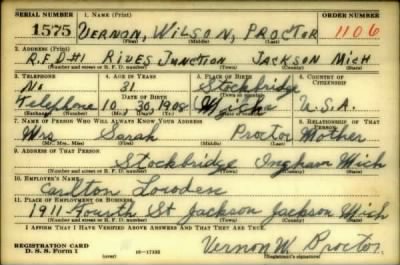 SERIAL NUMBER 1. NAME (Print) ORDER NUMBER
1575 VERNON, WILSON, PROCTOR 1106
(First) (Middle) (Last)
2. ADDRESS (Print)
R.F.D#1 RIVES JUNCTION JACKSON MICH
(Number and street or R. F. D. number) (Town) (County) (State)
3. TELEPHONE 4. AGE IN YEARS 5. PLACE OF BIRTH 6. COUNTRY OF CITIZENSHIP
No 31 Stockbridge
DATE OF BIRTH (Town or county)
Telephone 10 30 1908 Mich U.S.A.
(Exchange) (Number) (Mo.) (Day) (Yr.) (State or country)
7. NAME OF PERSON WHO WILL ALWAYS KNOW YOUR ADDRESS 8. RELATIONSHIP OF THAT PERSON
Mrs Sarah Proctor Mother
(Mr., Mrs., Miss) (First) (Middle) (Last)
9. ADDRESS OF THAT PERSON
Stockbridge Ingham Mich
(Number and street or R. F. D. number) (Town) (County) (State)
10. EMPLOYER'S NAME
Carlton Lowden
11. PLACE OF EMPLOYMENT OR BUSINESS
1911 Fourth St Jackson Jackson Mich
(Number and street or R. F. D. number) (Town) (County) (State)
I AFFIRM THAT I HAVE VERIFIED ABOVE ANSWERS AND THAT THEY ARE TRUE.
REGISTRATION CARD
D. S. S. Form 1 (over) 16-17105 Vernon W. Proctor
(Registrant's signature)